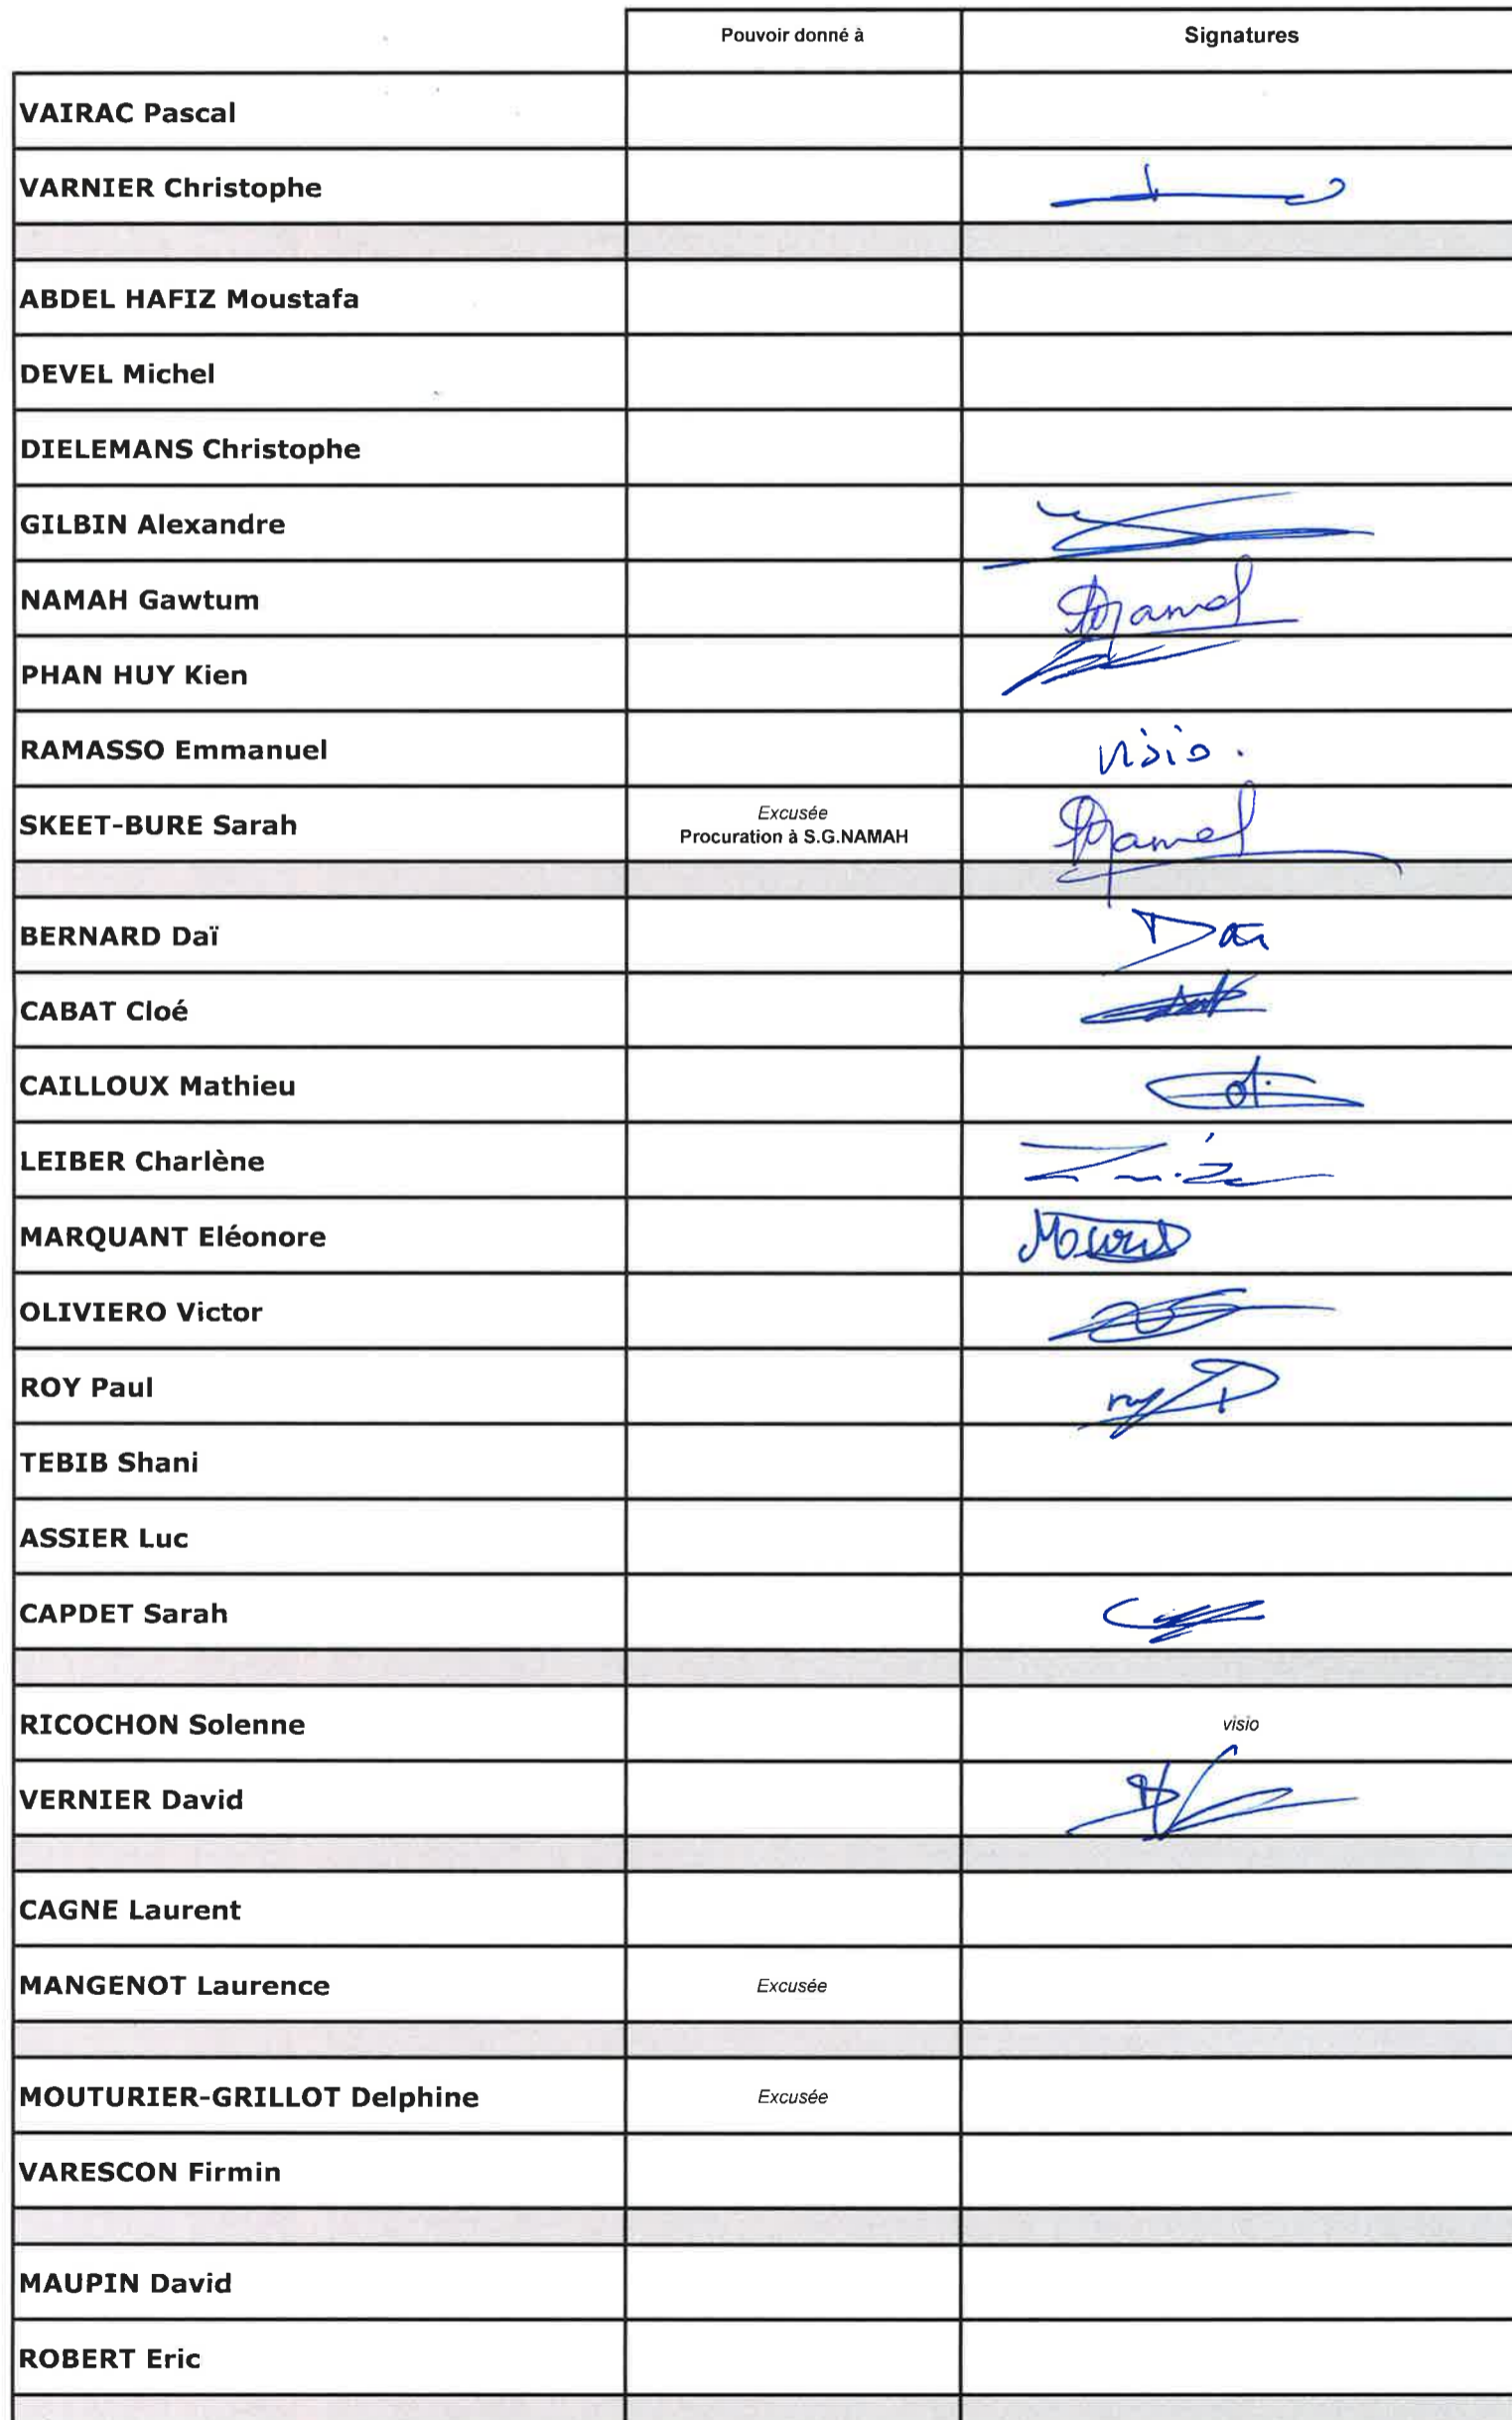 Pouvoir donné à Signatures
VAIRAC Pascal
VARNIER Christophe
ABDEL HAFIZ Moustafa
DEVEL Michel
DIELEMANS Christophe
GILBIN Alexandre
NAMAH Gawtum
PHAN HUY Kien
RAMASSO Emmanuel visio.
SKEET-BURE Sarah Excusée
Procuration à S.G.NAMAH
BERNARD Daï Daï
CABAT Cloé
CAILLOUX Mathieu
LEIBER Charlène
MARQUANT Eléonore
OLIVIERO Victor
ROY Paul
TEBIB Shani
ASSIER Luc
CAPDET Sarah
RICOCHON Solenne visio
VERNIER David
CAGNE Laurent
MANGENOT Laurence Excusée
MOUTURIER-GRILLOT Delphine Excusée
VARESCON Firmin
MAUPIN David
ROBERT Eric